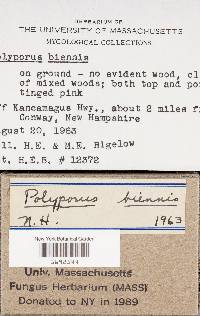 HERBARIUM OF
THE UNIVERSITY OF MASSACHUSETTS
MYCOLOGICAL COLLECTIONS
olyporus biennis
on ground - no evident wood, cl
of mixed woods; both top and po
tinged pink
ff Kancamagus Hwy., about 2 miles f
Conway, New Hampshire
ugust 20, 1963
ll. H.E. & M.E. Bigelow
t. H.E.B. # 12372
Polyporus biennis
N.H. 1963
New York Botanical Garden
Univ. Massachusetts
Fungus Herbarium (MASS)
Donated to NY in 1989